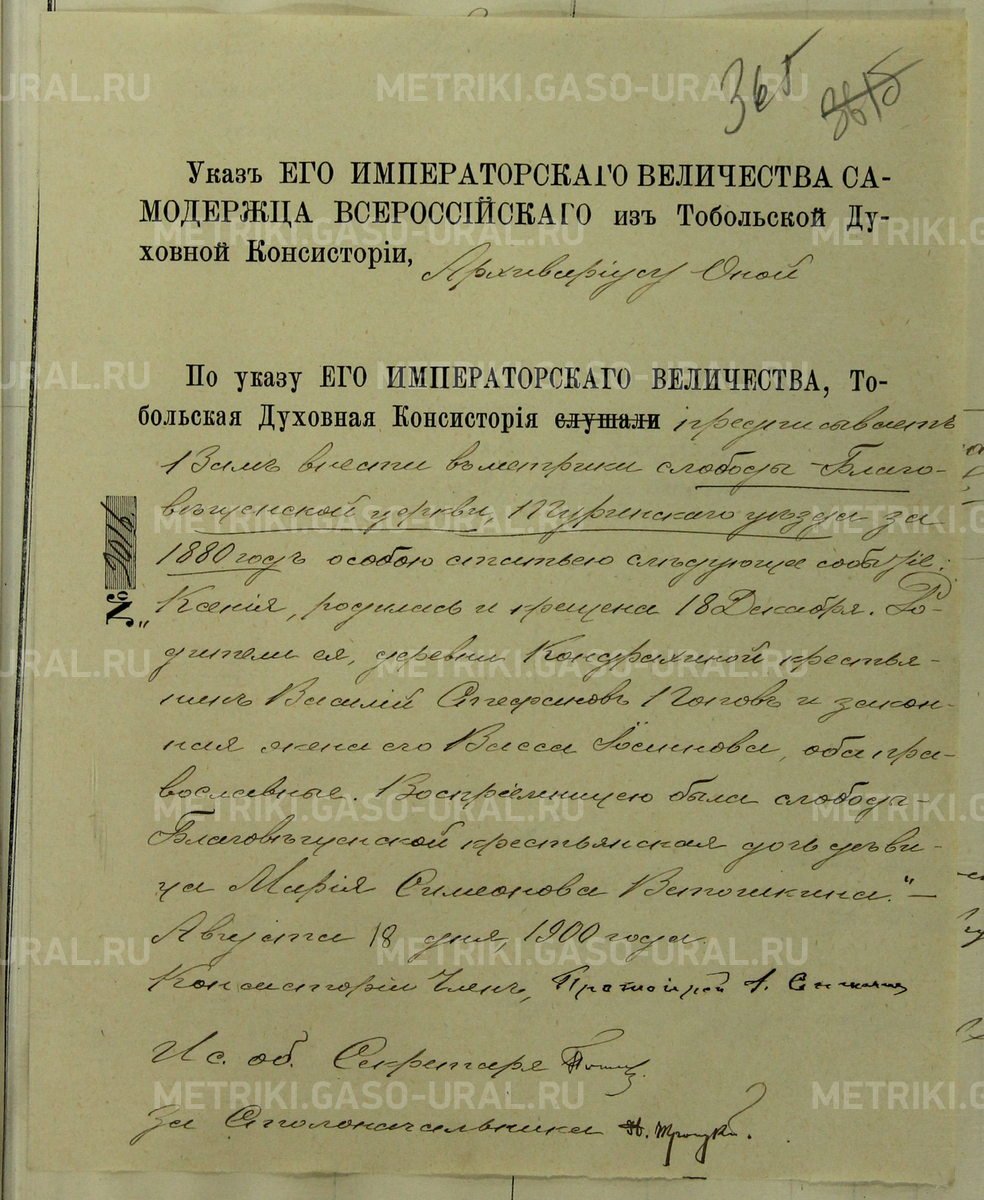 365
3645
Указъ ЕГО ИМПЕРАТОРСКАГО ВЕЛИЧЕСТВА СА-
МОДЕРЖЦА ВСЕРОССІЙСКАГО изъ Тобольской Ду-
ховной Консисторіи, Архиваріусу Оной
По указу ЕГО ИМПЕРАТОРСКАГО ВЕЛИЧЕСТВА, То-
больская Духовная Консисторія слушали предписываетъ
Вамъ внести въ метрики слободы Благо-
вѣщенской церкви, Туринскаго уѣзда за
1880 годъ особою статьею слѣдующее событіе:
№ 2016
"Ксенія, родилась и крещена 18 Декабря. Ро-
дители ея, деревни Кондрахиной крестья-
нинъ Василій Стефановъ Поповъ и закон-
ная жена его Васса Іосифова, оба пра-
вославные. Воспріемницею была слободы
Благовѣщенской крестьянская дочь дѣви-
ца Марія Симеонова Ватошкина."—
Августа 18 дня, 1900 года.
Консисторіи Членъ, Протоіерей
Ис. об. Секретаря
За Столоначальника Н. Троицкій.
METRIKI.GASO-URAL.RU